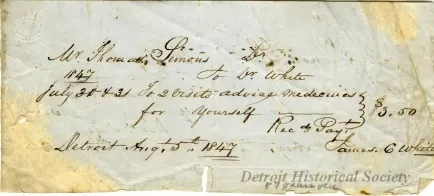 Mr. Thomas Simons Dr.
1847 To Dr. White
July 30 & 31 To 2 visits advice medecines
for yourself $3.50
Rec'd Pay't
Detroit Augt 5th 1847 James. C White
Detroit Historical Society